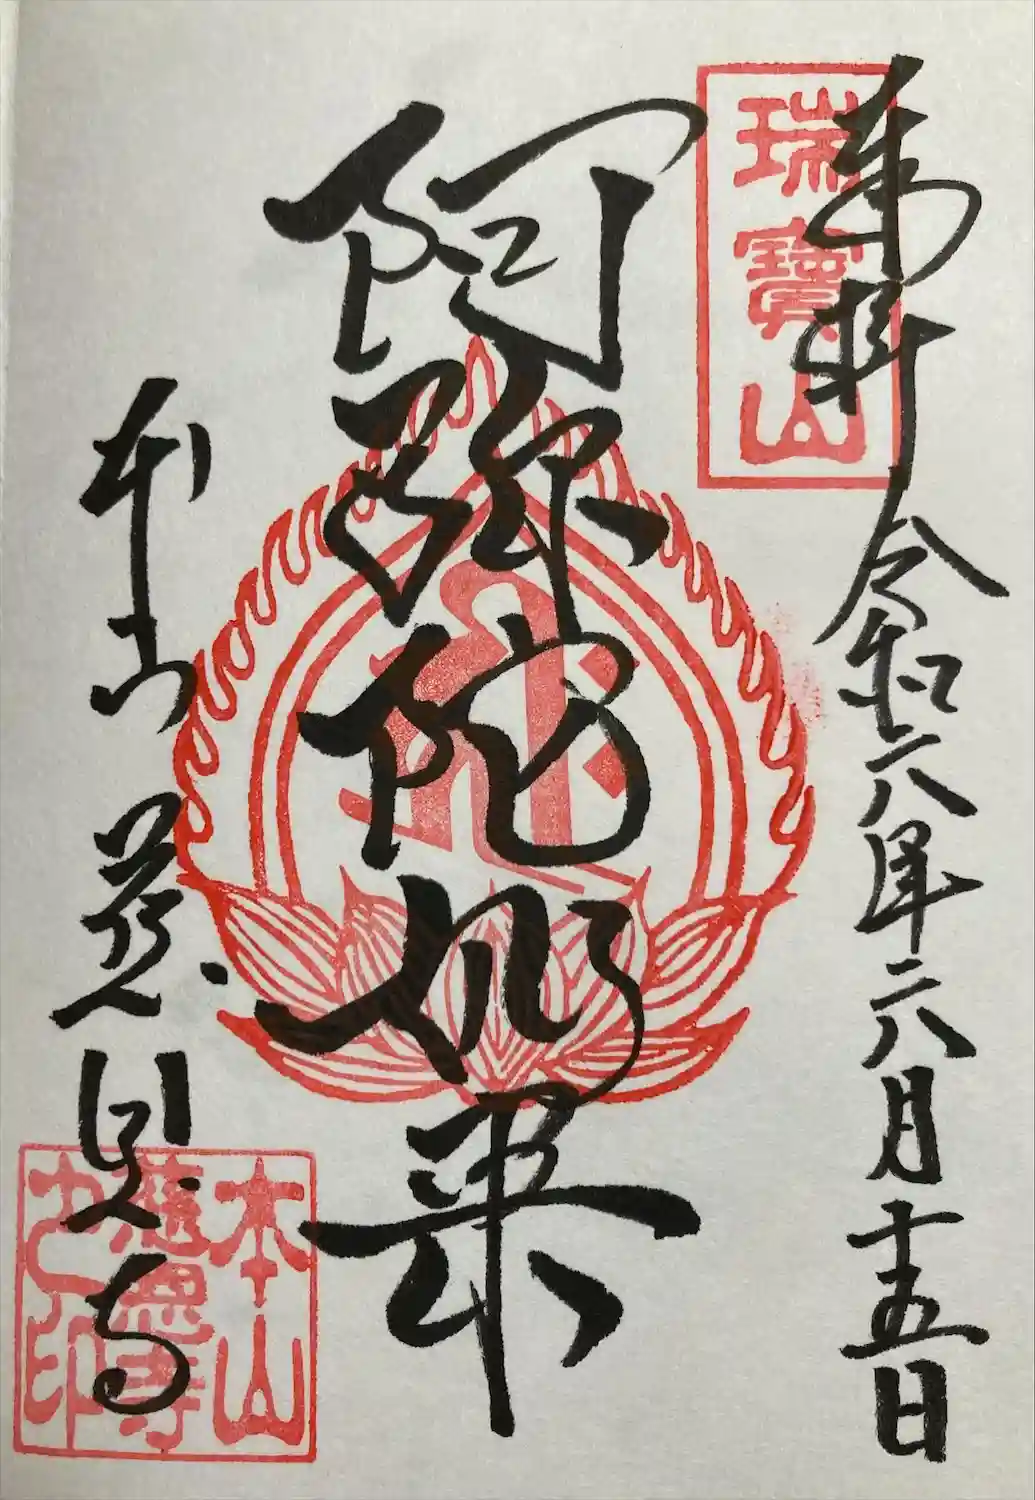 奉拝
令和六年六月十五日
瑞寶山
阿弥陀如来
本山 慈恩寺
本山
慈恩寺
之印